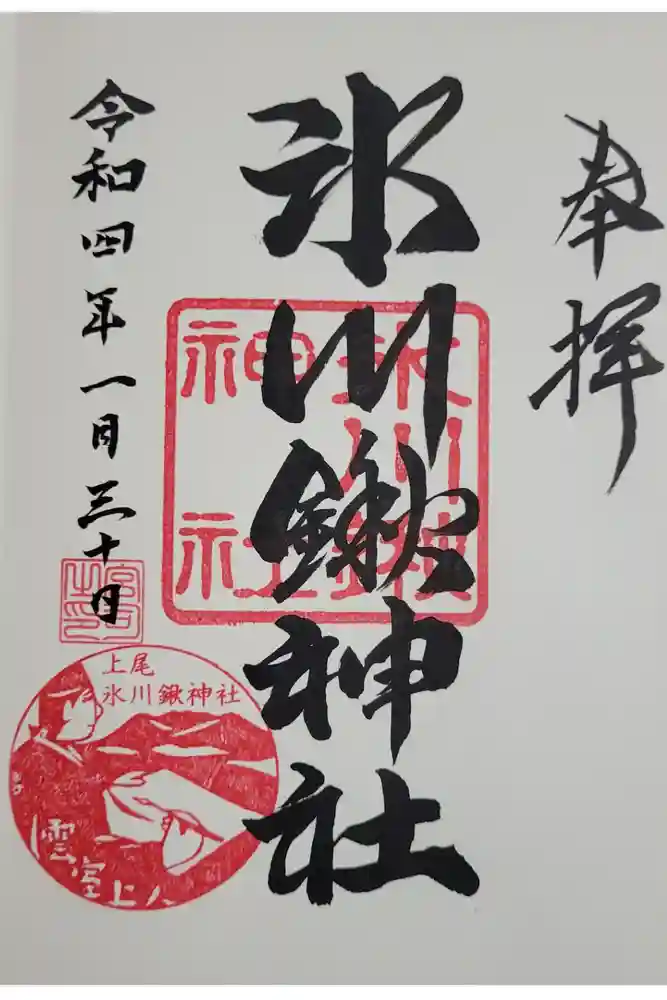 奉拝
氷川鍬神社
氷川鍬神社
令和四年一月三十日
宮司之印
上尾
氷川鍬神社
雲室上人